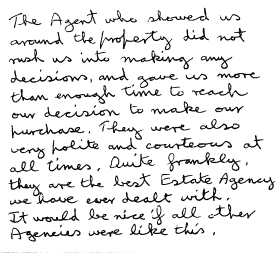 The Agent who showed us
around the property did not
rush us into making any
decisions, and gave us more
than enough time to reach
our decision to make our
purchase. They were also
very polite and courteous at
all times. Quite frankly,
they are the best Estate Agency
we have ever dealt with.
It would be nice if all other
Agencies were like this.